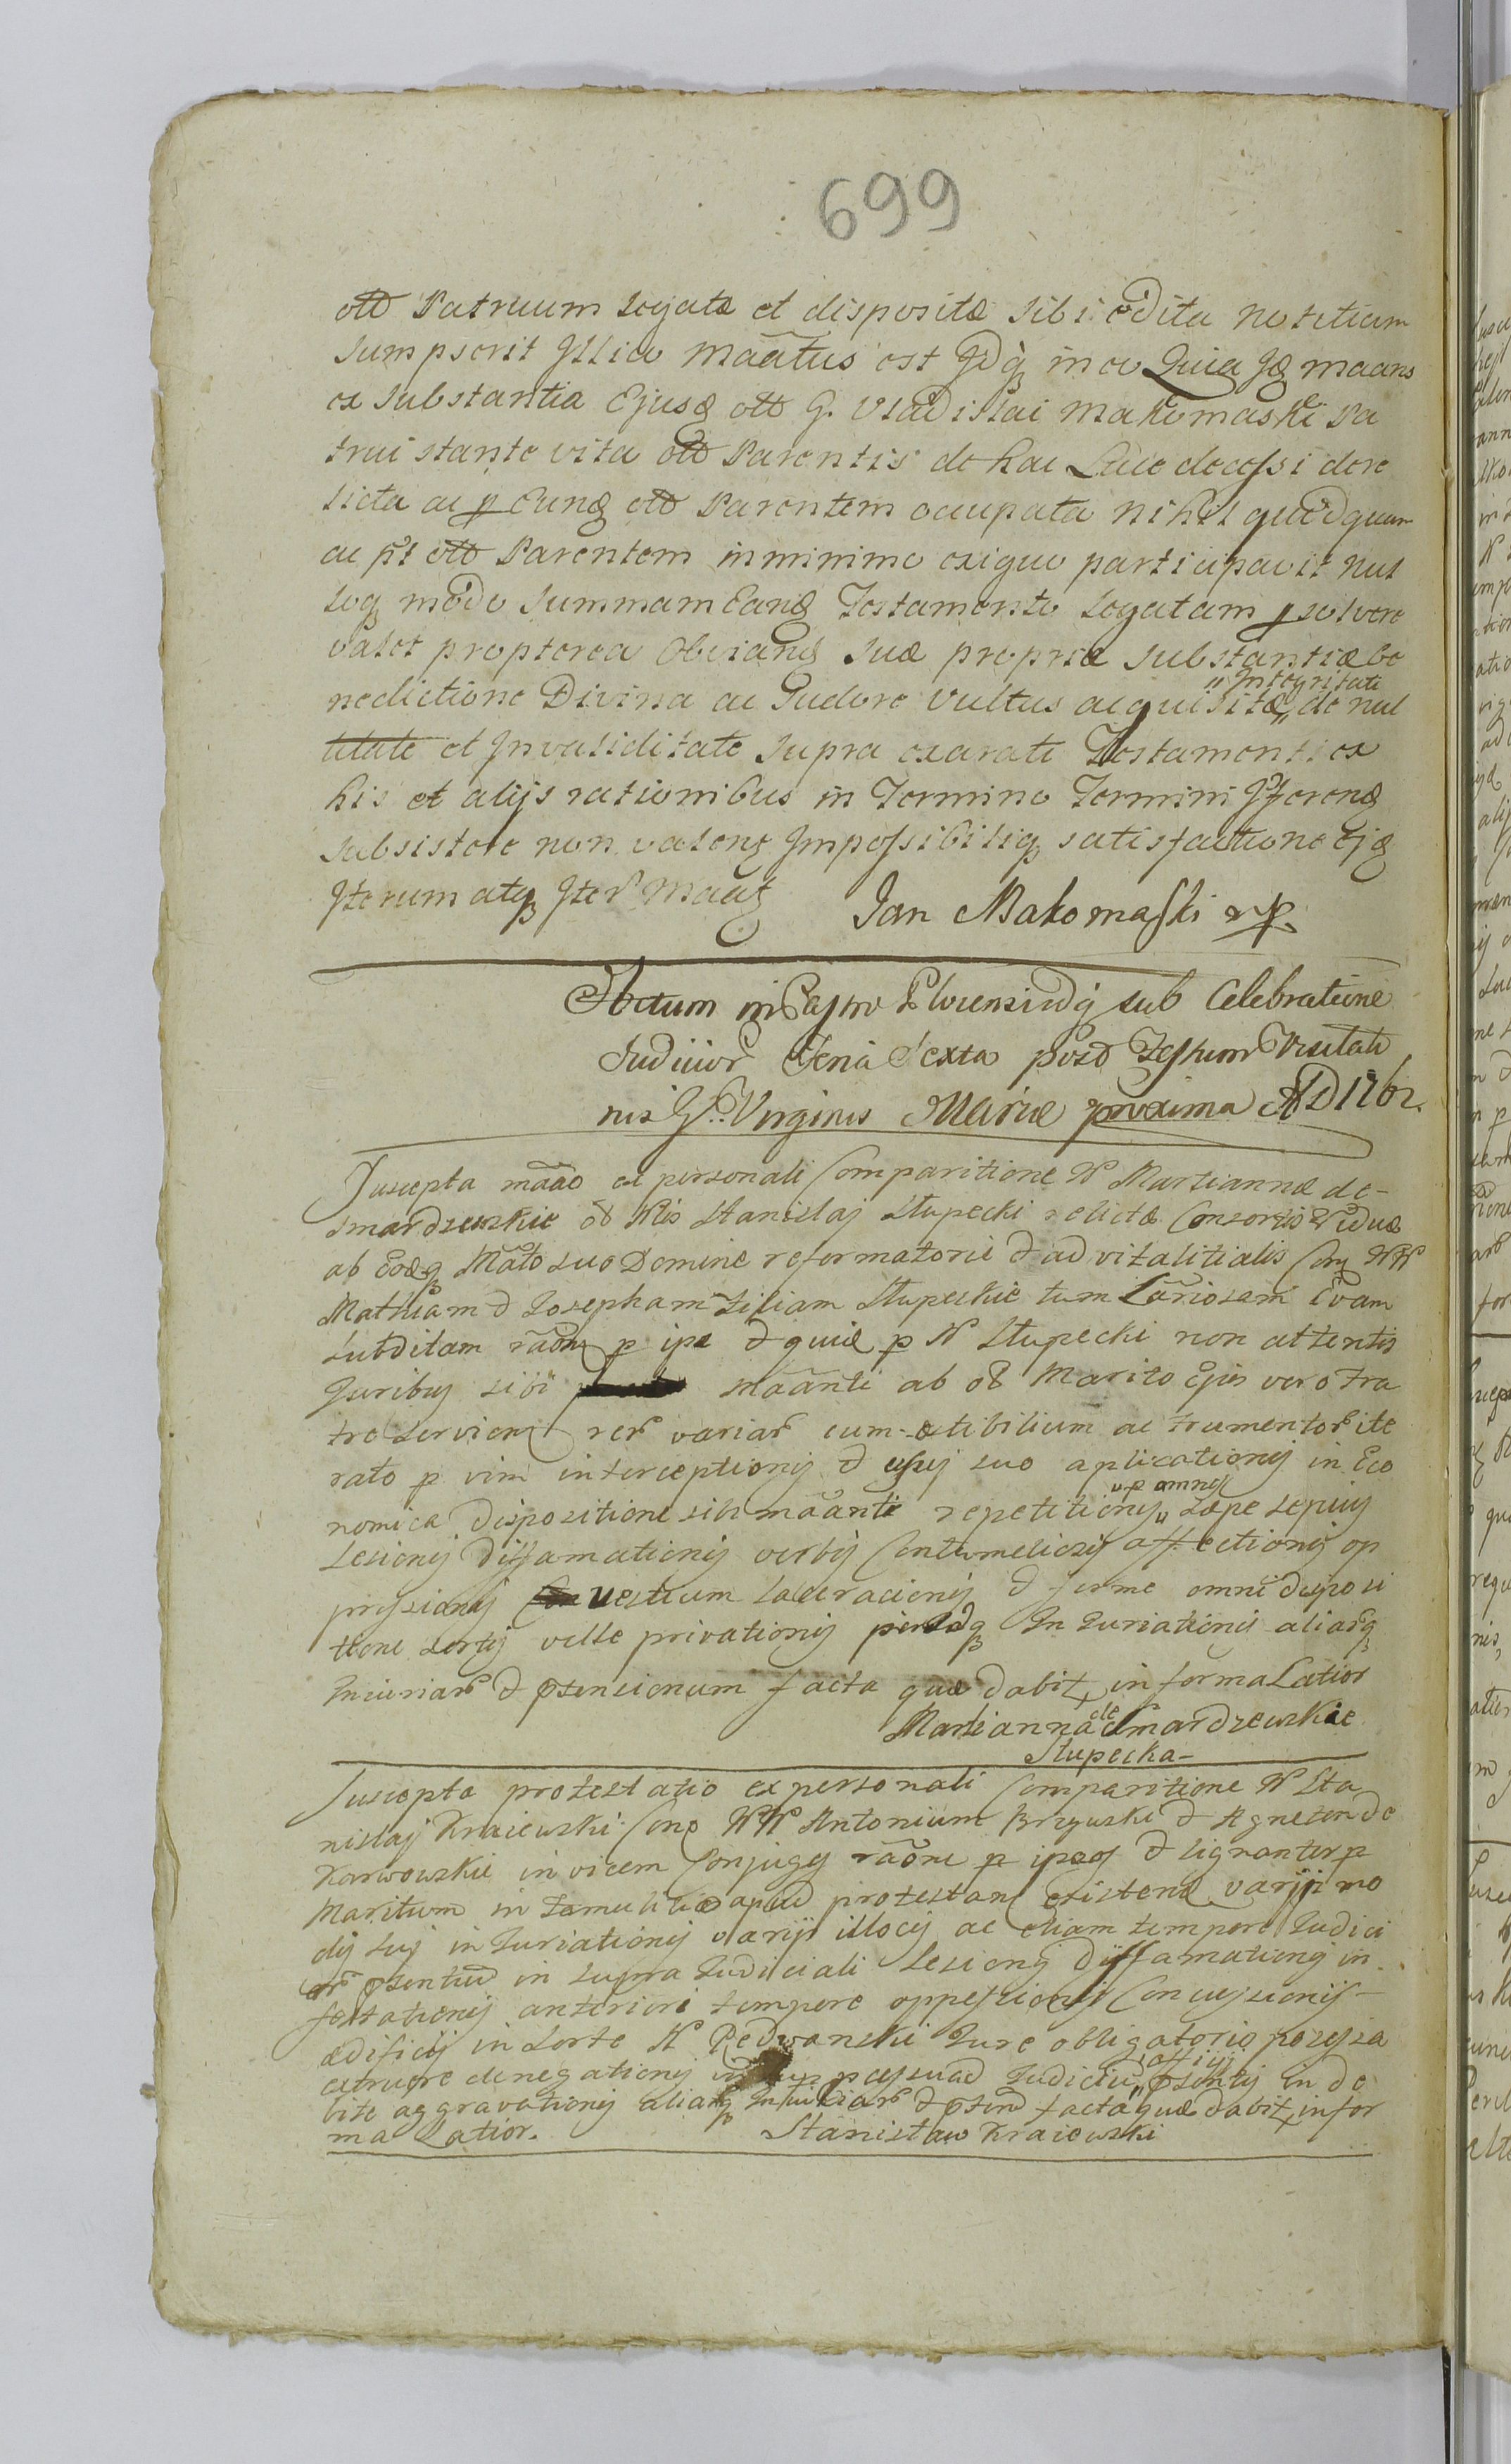 699
olb Patruum Legatæ et dispositæ sibi edita notitiam
sumpserit Illico maãtus est Idq in ea Quia Iq maans
ex substantia Ejusq olb G. Vladislai Makomaski Pa
trui stante vita olb Parentis de hac Luce decessi dere
licta ac p Eunq olb Parentem occupata nihil quidquam
ac pt olb Parentem in minimo exiguo participavit nul
loq modo summam Eanq Testamento Legatam p solvere
valet propterea Obvianq suæ propriæ substantiæ be
nedictione Divina ac Sudore vultus acquisitæ „ de nul
„ Integritati
litate et Invaliditate supra exarati Testamenti ex
his et alijs rationibus in Termino Termini
subsistere non valenq Impossibiliq satisfactione Ejq
Iterum atq Iter maaq
Jan Makomaski mp.
Actum in Castro sub Celebratione
Judicior Feria Sexta post Festum Visitati
nis G. Virginis Mariæ proxima AD 1762.
Suscepta maão ex personali Comparitione N Martiannæ de
Smardzewskie ol Nis Stanislaj Słupecki relictæ Consortis Viduæ
ab Eodq Mãto suo Domine reformatorii & advitalitialis Con NN
Mathiam & Josepham filiam Słupeckie tum Lãriosam Evam
subditam raõne p ipse & quiæ p N Słupecki non attentis
Juribus sibi maãnti ab ol Marito Ejus vero fra
tre servien rer variar cum estibilium ac frumentor ite
rato p vim interceptionij & usuj suo aplicationij in Eco
nomica dispositione sibi maãnti repetitionij „ sæpe sepius
„ p omnes
Lesionij diffamationij verbij Contumeliosij affectionij op
pressionij vestium laceracionij & ferme omni disposi
tione sortij velle privationij Injuriationis aliarq
Iniuriar & psensionum facta quæ dabit in forma Latior
Martianna de Smardzewskie
Słupecka
Suscepta protestatio ex personali Comparitione N Sta
nislaj Kraiewski Cono NN Antonium Brzyuski & Agneten de
Karwowskie in vicem Conjuges raõne p ipsos & signanter p
Maritum in famulitio apud protestan existen varijs mo
dij suj injuriationij varijs illocij ac etiam tempore Judici
or psentiu in supra Judiciali Lesionij diffamationij in
festationij anteriori tempore oppressionij Concussionij
ædificij in sorte N Pedwanski Jure obligatorio possessa
extruere denegationij Judiciu „ psentij in de
„ officij
bite aggravationij aliarq Iniuriar & psend facta quæ dabit in for
ma Latior.
Stanisław Kraiewski